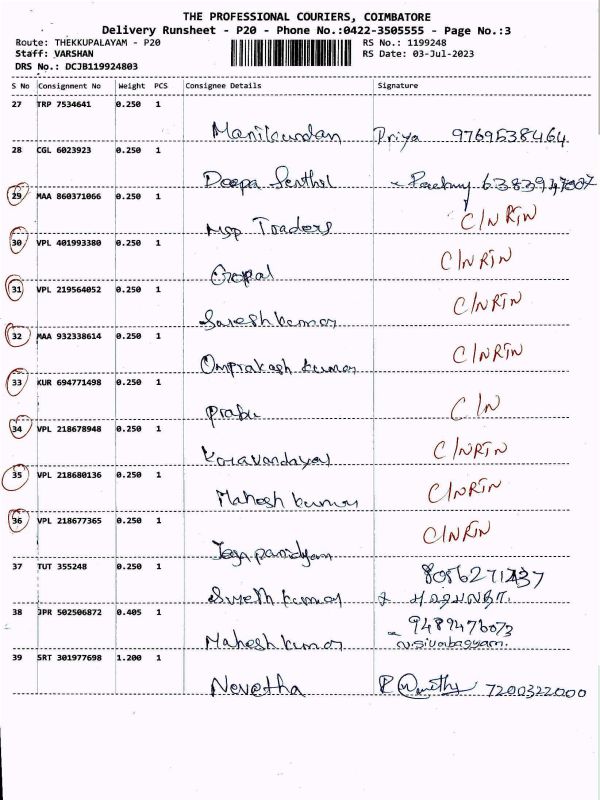 THE PROFESSIONAL COURIERS, COIMBATORE
Delivery Runsheet - P20 - Phone No.:0422-3505555 - Page No.:3
Route: THEKKUPALAYAM - P20 RS No.: 1199248
Staff: VARSHAN RS Date: 03-Jul-2023
DRS No.: DCJB119924803
S No Consignment No Weight PCS Consignee Details Signature
27 TRP 7534641 0.250 1
Manikundan Priya 9769538464
28 CGL 6023923 0.250 1
Deepa Senthil
29 MAA 860371066 0.250 1
Msp Traders C/NRIN
30 VPL 401993380 0.250 1
Gopal C/NRIN
31 VPL 219564052 0.250 1
Sureshkumar C/NRIN
32 MAA 932338614 0.250 1
Omprakash kumar C/NRIN
33 KUR 694771498 0.250 1
Prabu C/N
34 VPL 218678948 0.250 1
C/NRIN
35 VPL 218680136 0.250 1
Mahesh kumar C/NRIN
36 VPL 218677365 0.250 1
C/NRIN
37 TUT 355248 0.250 1
Suresh kumar
38 JPR 502506872 0.405 1
9489476073
Mahesh kumar N.Sivabagyam.
39 SRT 301977698 1.200 1
Nevetha 7200322000